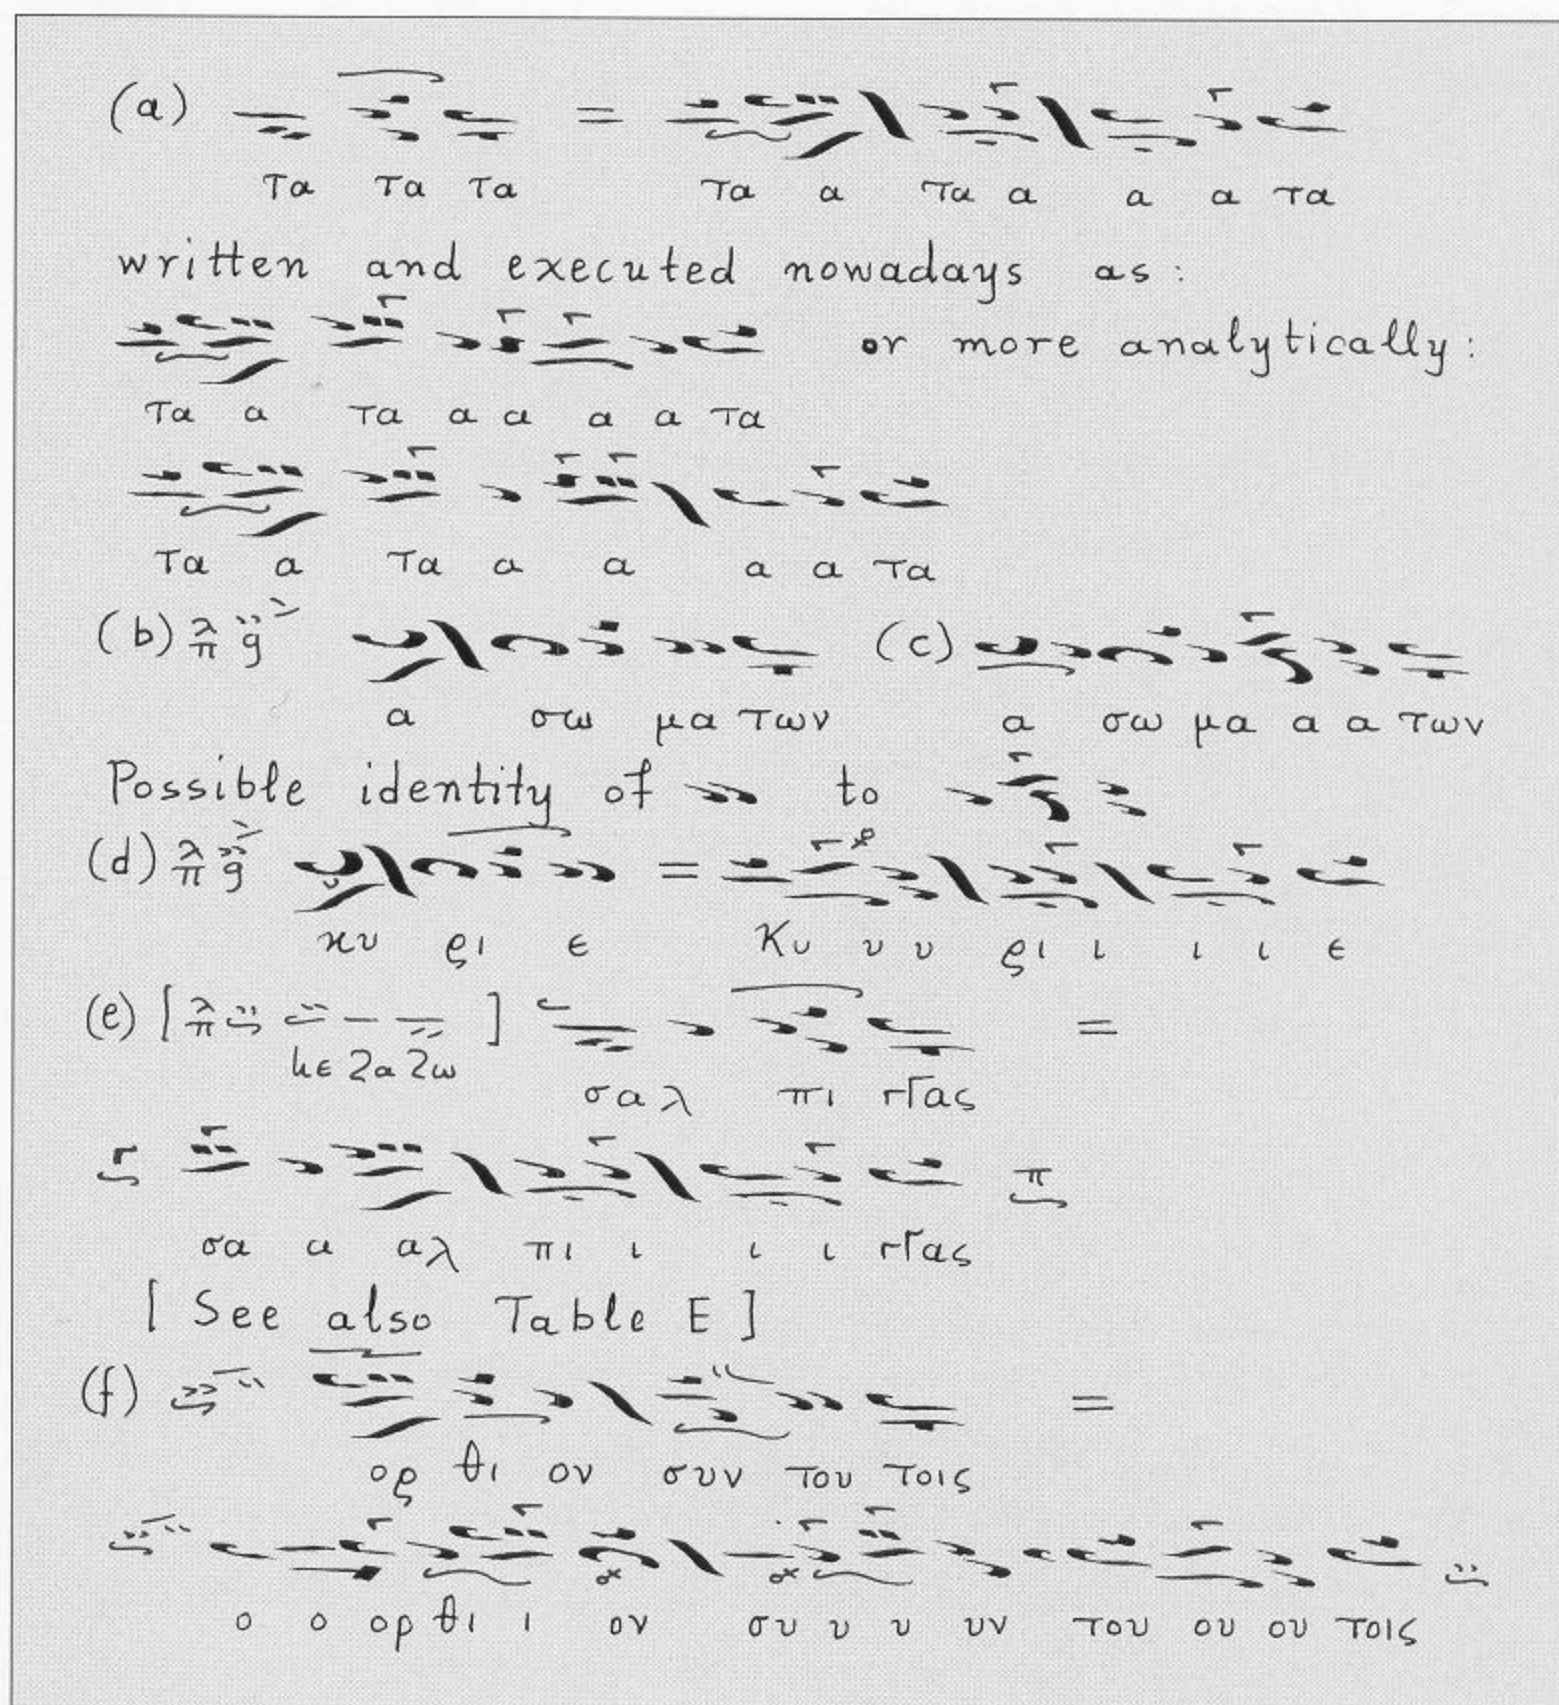 (a) =
Τα Τα Τα Τα α Τα α α α τα
written and executed nowadays as:
or more analytically:
Τα α Τα α α α α Τα
Τα α Τα α α α α Τα
(b) (c)
α σω μα των α σω μα α α των
Possible identity of to
(d) =
κυ ρι ε Κυ υ υ ρι ι ι ι ε
(e) [ ] =
σαλ πι
σα α αλ πι ι ι ι
[ See also Table E ]
(f) =
ορ θι ον συν του τοις
ο ο ορ θι ι ον συ υ υ υν του ου ου τοις